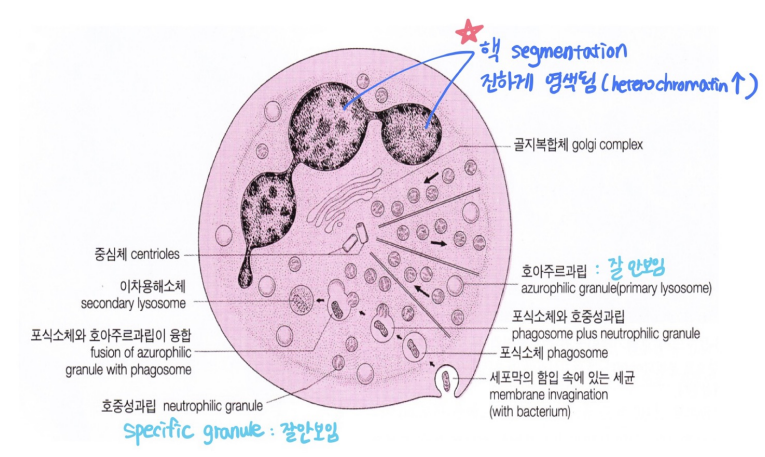 핵 segmentation
진하게 염색됨 (heterochromatin ↑)
골지복합체 golgi complex
중심체 centrioles
호아주르과립 : 잘 안보임
azurophilic granule(primary lysosome)
이차용해소체
secondary lysosome
포식소체와 호중성과립
phagosome plus neutrophilic granule
포식소체와 호아주르과립이 융합
fusion of azurophilic
granule with phagosome
포식소체 phagosome
세포막의 함입 속에 있는 세균
membrane invagination
(with bacterium)
호중성과립 neutrophilic granule
specific granule : 잘안보임